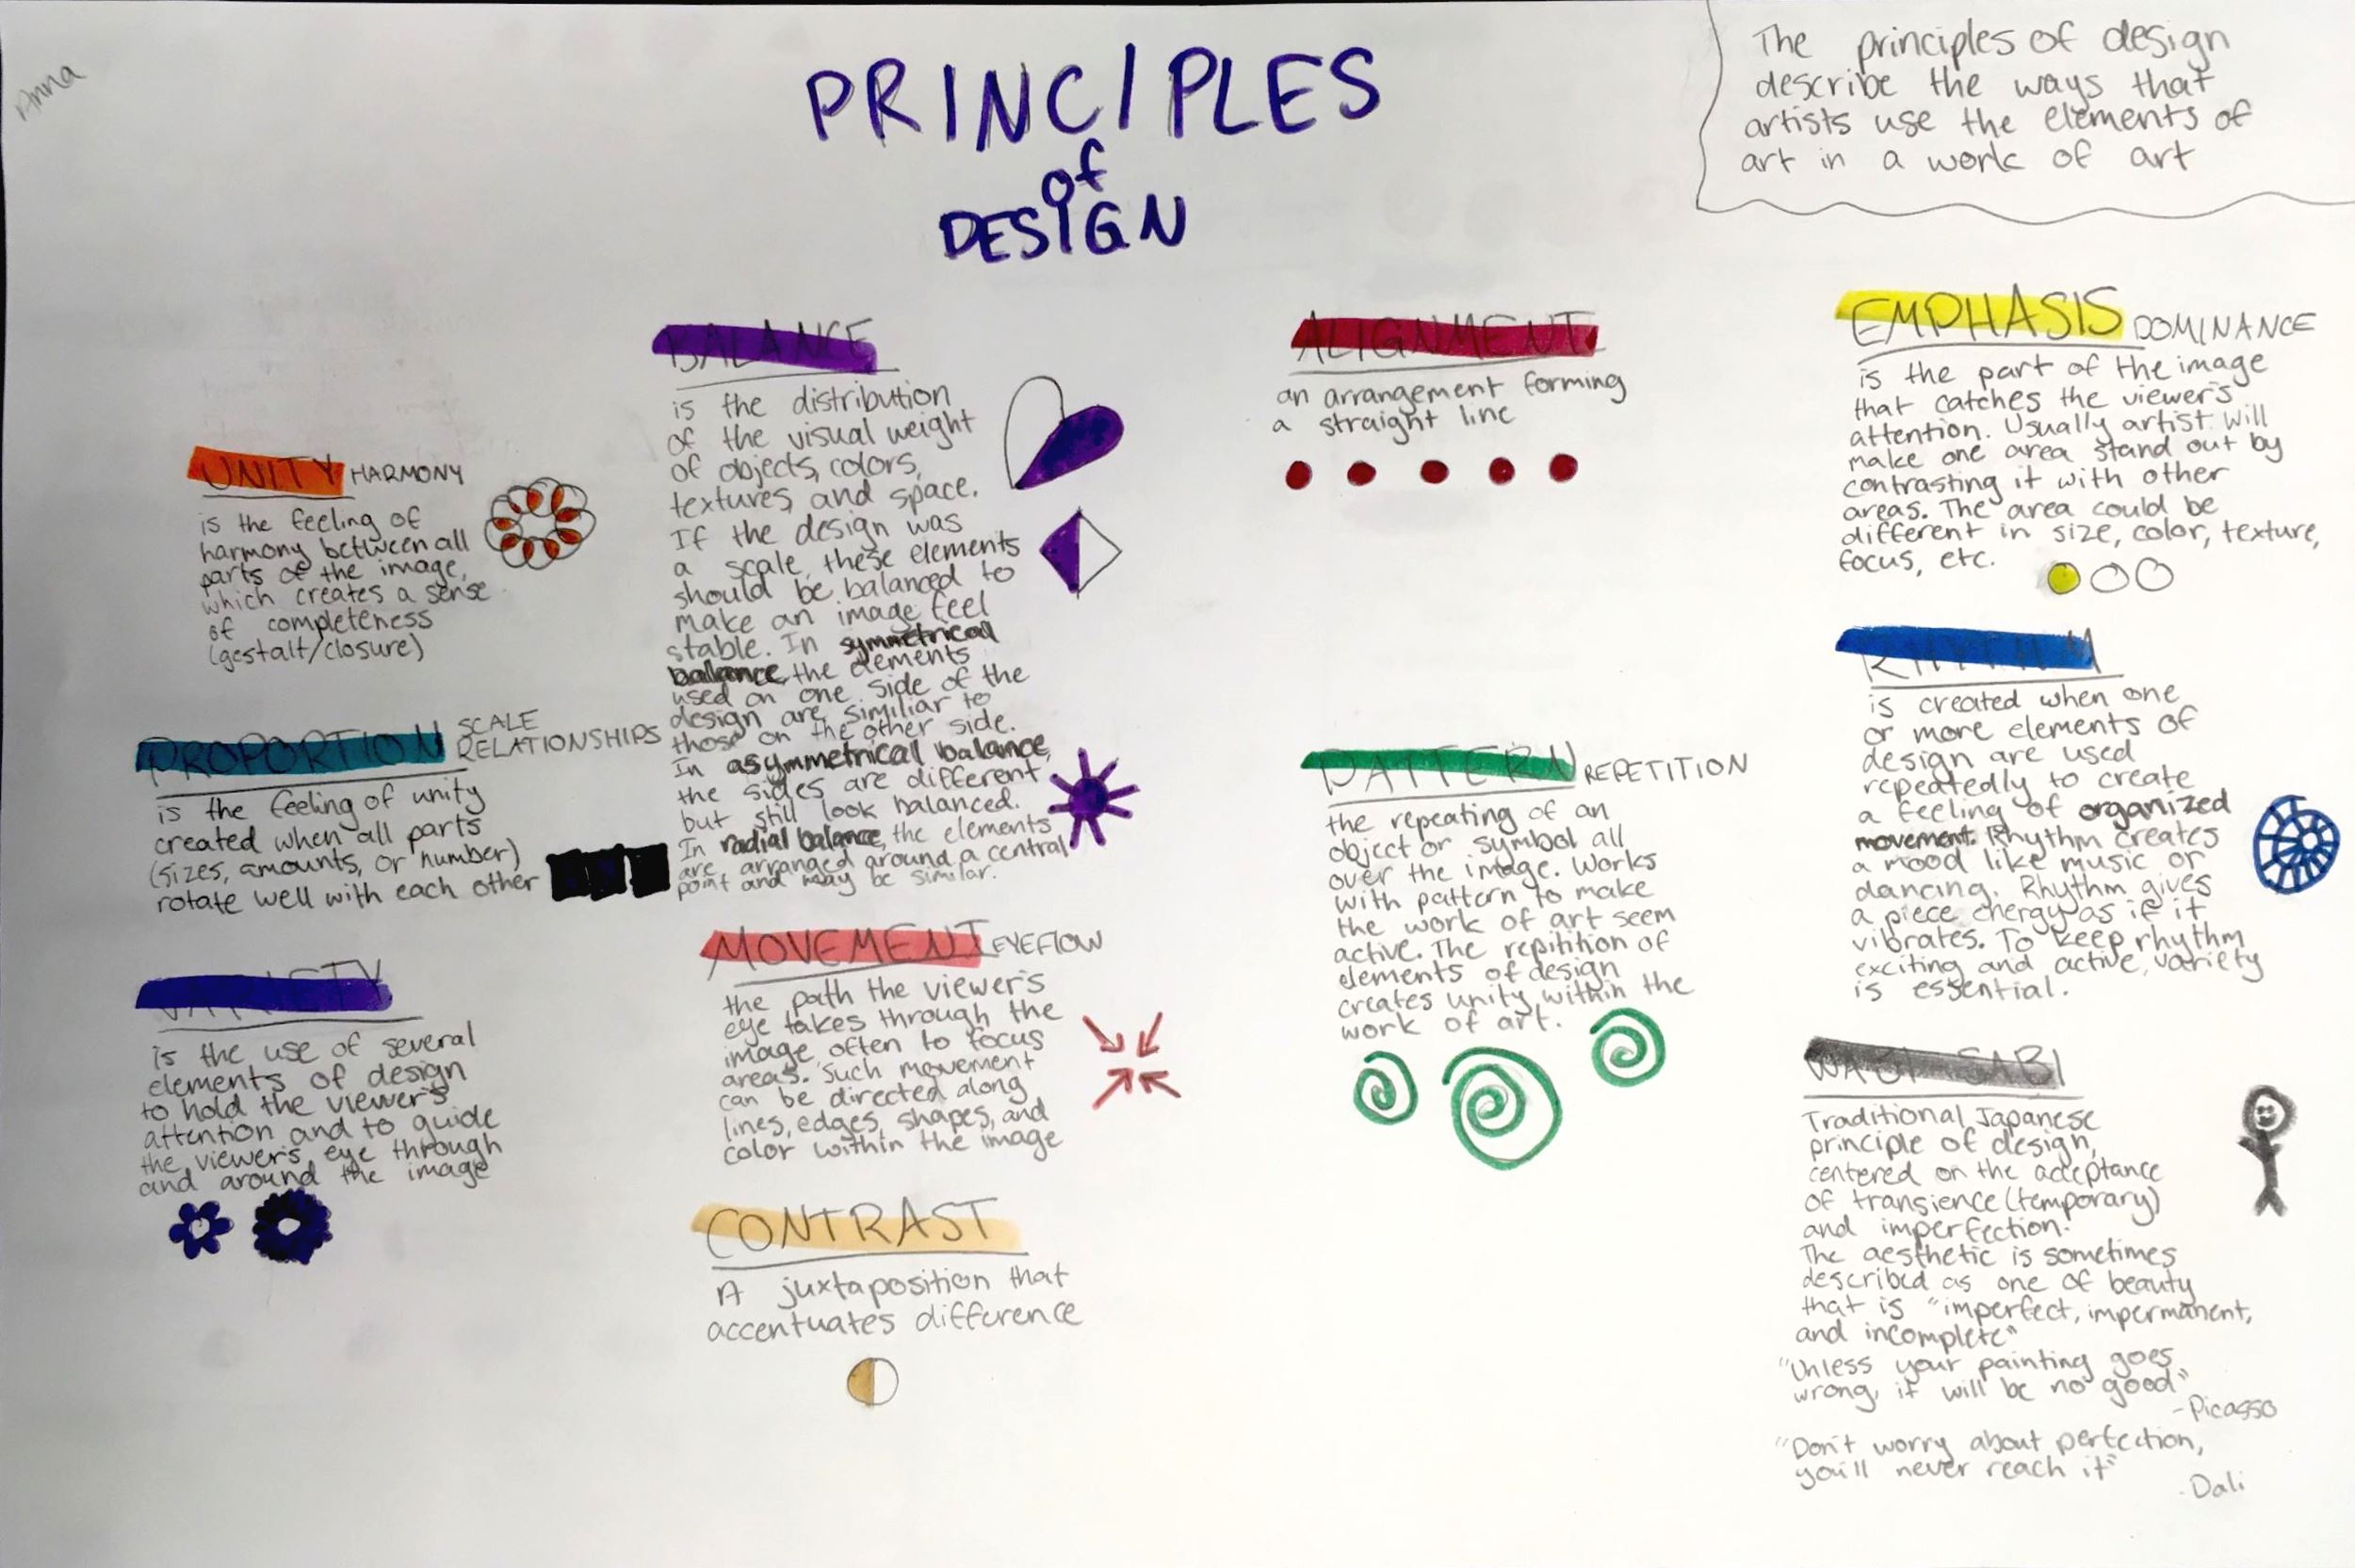 Anna
PRINCIPLES
of
DESIGN
The principles of design
describe the ways that
artists use the elements of
art in a work of art
UNITY HARMONY
is the feeling of
harmony between all
parts of the image,
which creates a sense
of completeness
(gestalt/closure)
PROPORTION SCALE
RELATIONSHIPS
is the feeling of unity
created when all parts
(sizes, amounts, or number)
rotate well with each other
VARIETY
is the use of several
elements of design
to hold the viewer's
attention and to guide
the viewers eye through
and around the image
BALANCE
is the distribution
of the visual weight
of objects, colors,
textures, and space.
If the design was
a scale, these elements
should be balanced to
make an image feel
stable. In symmetrical
balance, the elements
used on one side of the
design are similiar to
those on the other side.
In asymmetrical balance,
the sides are different
but still look balanced.
In radial balance, the elements
are arranged around a central
point and may be similar.
MOVEMENT EYEFLOW
the path the viewer's
eye takes through the
image, often to focus
areas. Such movement
can be directed along
lines, edges, shapes, and
color within the image
CONTRAST
A juxtaposition that
accentuates difference
ALIGNMENT
an arrangement forming
a straight line
PATTERN REPETITION
the repeating of an
object or symbol all
over the image. Works
with pattern to make
the work of art seem
active. The repitition of
elements of design
creates unity within the
work of art.
EMPHASIS DOMINANCE
is the part of the image
that catches the viewer's
attention. Usually artist will
make one area stand out by
contrasting it with other
areas. The area could be
different in size, color, texture,
focus, etc.
RHYTHM
is created when one
or more elements of
design are used
repeatedly to create
a feeling of organized
movement. Rhythm creates
a mood like music or
dancing. Rhythm gives
a piece energy as if it
vibrates. To keep rhythm
exciting and active, variety
is essential.
WABI SABI
Traditional Japanese
principle of design,
centered on the acceptance
of transience (temporary)
and imperfection.
The aesthetic is sometimes
described as one of beauty
that is "imperfect, impermanent,
and incomplete"
"Unless your painting goes
wrong, it will be no good"
-Picasso
"Don't worry about perfection,
you'll never reach it"
-Dali